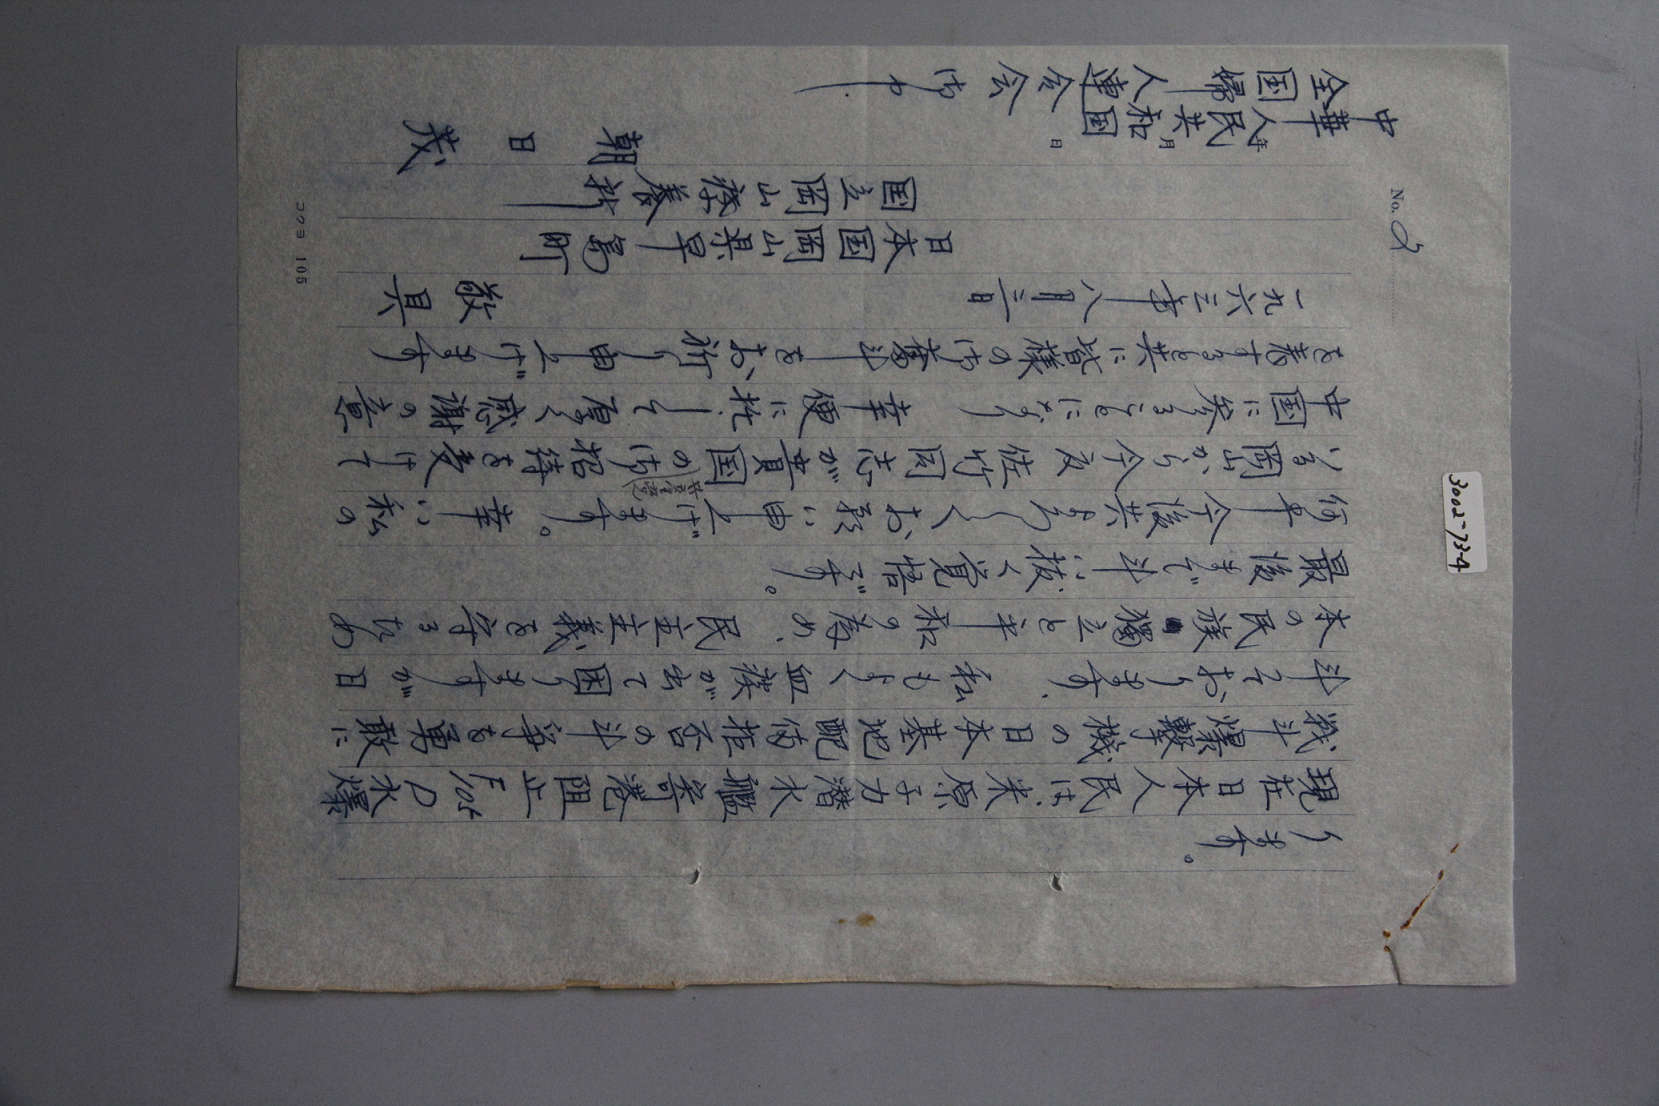 No. 2
ります。
現在日本人民は、米原子力潜水艦寄港阻止F105D水爆
戦斗爆撃機の日本基地配備拒否の斗争を勇敢に
斗っております、私もよく血痰が出て困りますが日
本の民族独立と平和の為め、民主主義を守るため
最後まで斗い抜く覚悟です。
何卒今後共よろしくお願い申上げます。幸い私の
いる岡山から今度佐竹同志が貴国の御招待を受けて
中国に参ることになり 幸便に托して厚く感謝の意
を表すると共に皆様の御奮斗をお祈り申上げます
敬具
一九六三年八月三日
日本国岡山県早島町
国立岡山療養所
朝日茂
年 月 日
中華人民共和国
全国婦人連合会御中
コクヨ 105
3002-73-4